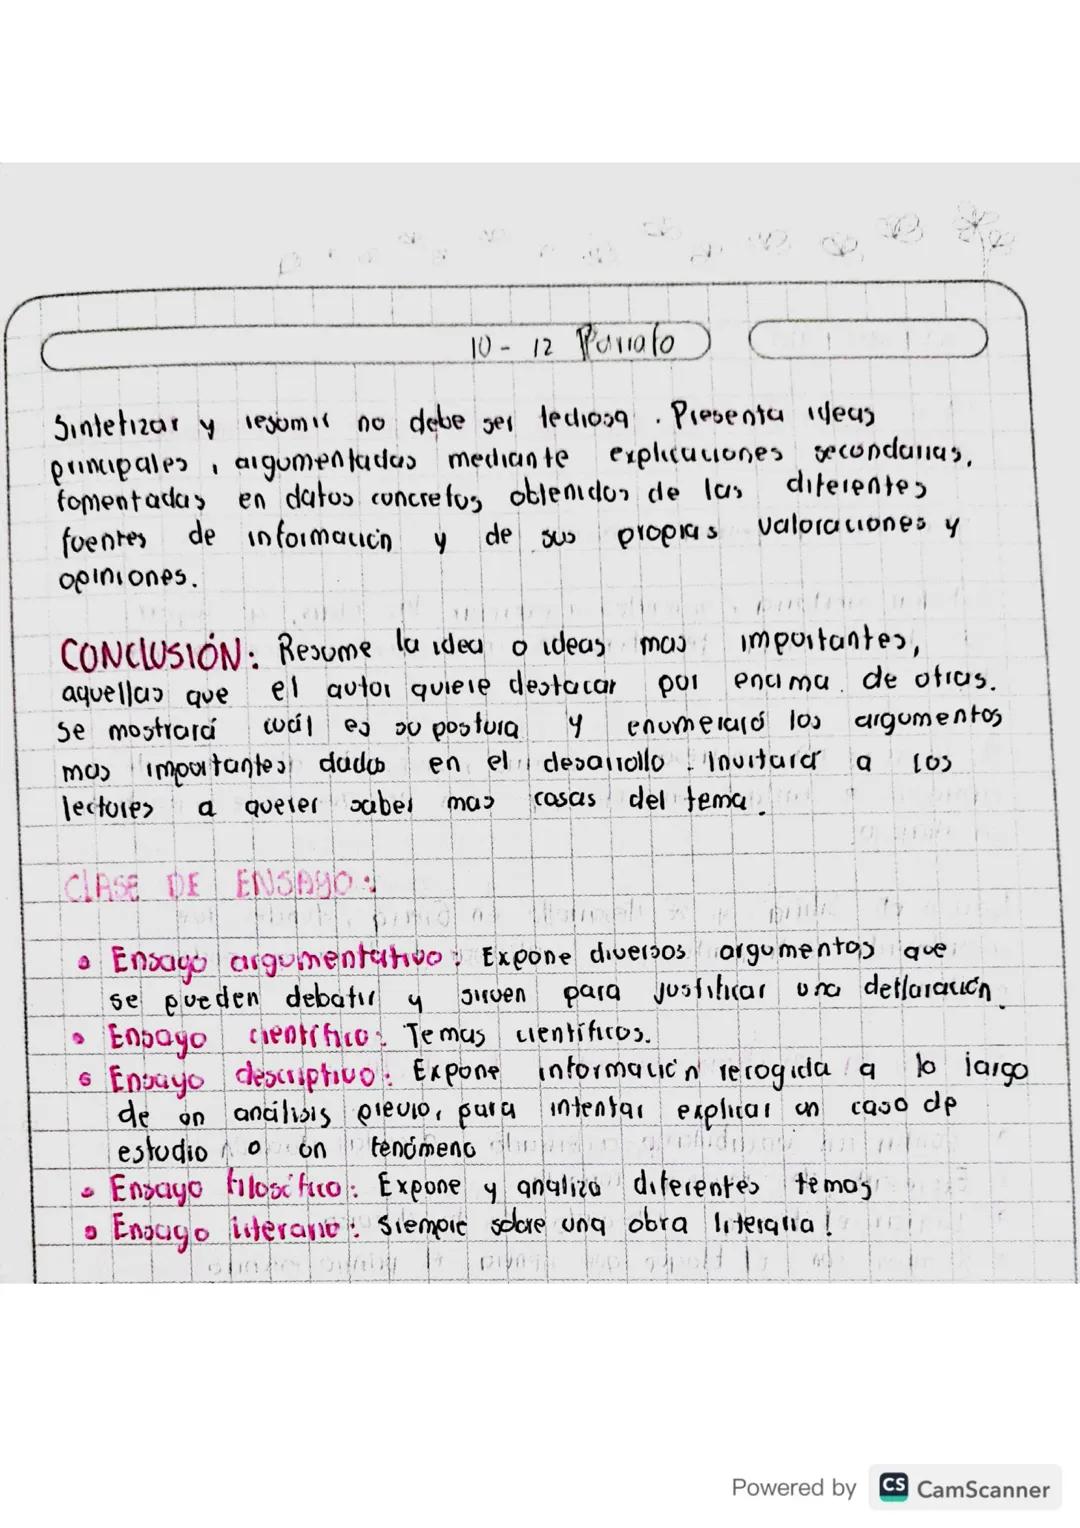 10 - 12 Parrafo
Sintetizar y resumir no debe ser tediosa. Presenta ideas
principales, argumentadas mediante explicaciones secundarias,
fomentadas en datos concretos obtenidos de las diferentes
fuentes de información y de sus propias valoraciones y
opiniones.
CONCLUSIÓN: Resume la idea o ideas mas importantes,
aquellas que el autor quiere destacar por encima de otras.
Se mostrará cuál es su postura y enumerará los argumentos
mas importantes dados en el desarrollo. Invitará a los
lectores a querer saber mas cosas del tema.
CLASE DE ENSAYO:
• Ensayo argumentativo: Expone diversos argumentos que
se pueden debatir y sirven para justificar una declaración.
• Ensayo científico: Temas científicos.
• Ensayo descriptivo: Expone información recogida a lo largo
de un análisis previo, para intentar explicar un caso de
estudio o un fenómeno
• Ensayo filosófico: Expone y analiza diferentes temas
• Ensayo literario: Siempre sobre una obra literaria!
Powered by CS CamScanner